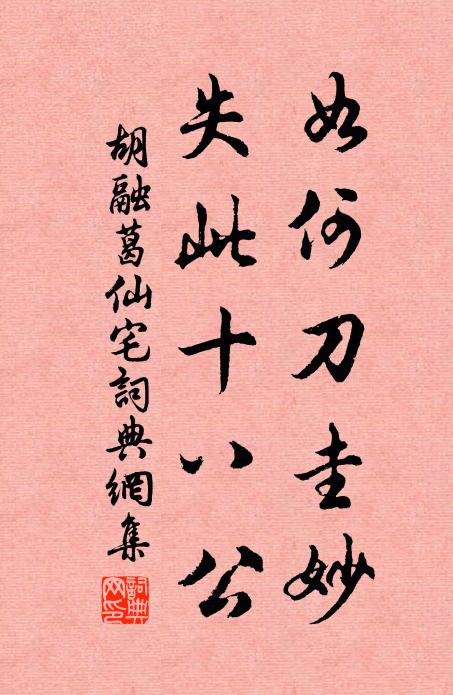 如何刀圭妙
失此十八公
胡融葛仙宅詞典網集
詞典網印